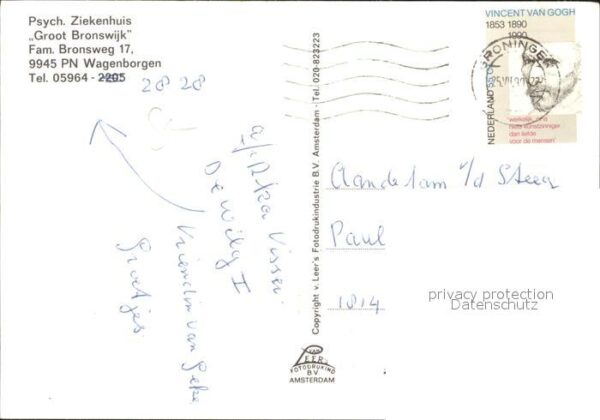 Psych. Ziekenhuis
„Groot Bronswijk”
Fam. Bronsweg 17,
9945 PN Wagenborgen
Tel. 05964 - 2205
28 28
Vissei
De Wilg I
Vriendin van
Groetjes
Copyright v. Leer's Fotodrukindustrie B.V. Amsterdam - Tel. 020-823223
VAN LEER
FOTODRUKIND
BV
AMSTERDAM
VINCENT VAN GOGH
1853 1890
1990
NEDERLAND 55 c
GRONINGEN
werkelijk
niets kunstzinniger
dan liefde
voor de mensen
Aan de fam v/d Steeg
Paul
1814
privacy protection
Datenschutz